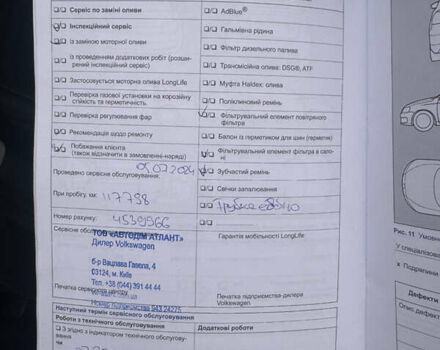 Сервіс по заміні оливи
AdBlue®
Інспекційний сервіс
Гальмівна рідина
із заміною моторної оливи
Фільтр дизельного палива
із проведенням додаткових робіт (розширений інспекційний сервіс)
Трансмісійна олива: DSG®, ATF
Застосовується моторна олива LongLife
Муфта Haldex: олива
Перевірка газової установки на корозійну
стійкість та герметичність.
Поліклиновий ремінь
Перевірка регулювання фар
Фільтрувальний елемент повітряного
фільтра
Рекомендація щодо ремонту
Балон із герметиком для шин (герметик)
Побажання клієнта
(також відзначити в замовленні-наряді)
Фільтрувальний елемент фільтра в сало-
ні
Проведено сервісне обслуговування:
Зубчастий ремінь
Свічки запалювання
При пробігу, км: 117798
Номер рахунку:
Гарантія мобільності LongLife
ТОВ «АВТОДІМ АТЛАНТ»
Дилер Volkswagen
б-р Вацлава Гавела, 4
03124, м. Київ
Тел. +38 (044) 391 44 44
Печатка сервісного центру
Печатка підприємства-дилера
Volkswagen
Наступний термін сервісного обслуговування
Роботи з технічного обслуговування
Додаткові роботи
З згідно з індикатором технічного обслугову-
вання
Рис. 11
Дефекти